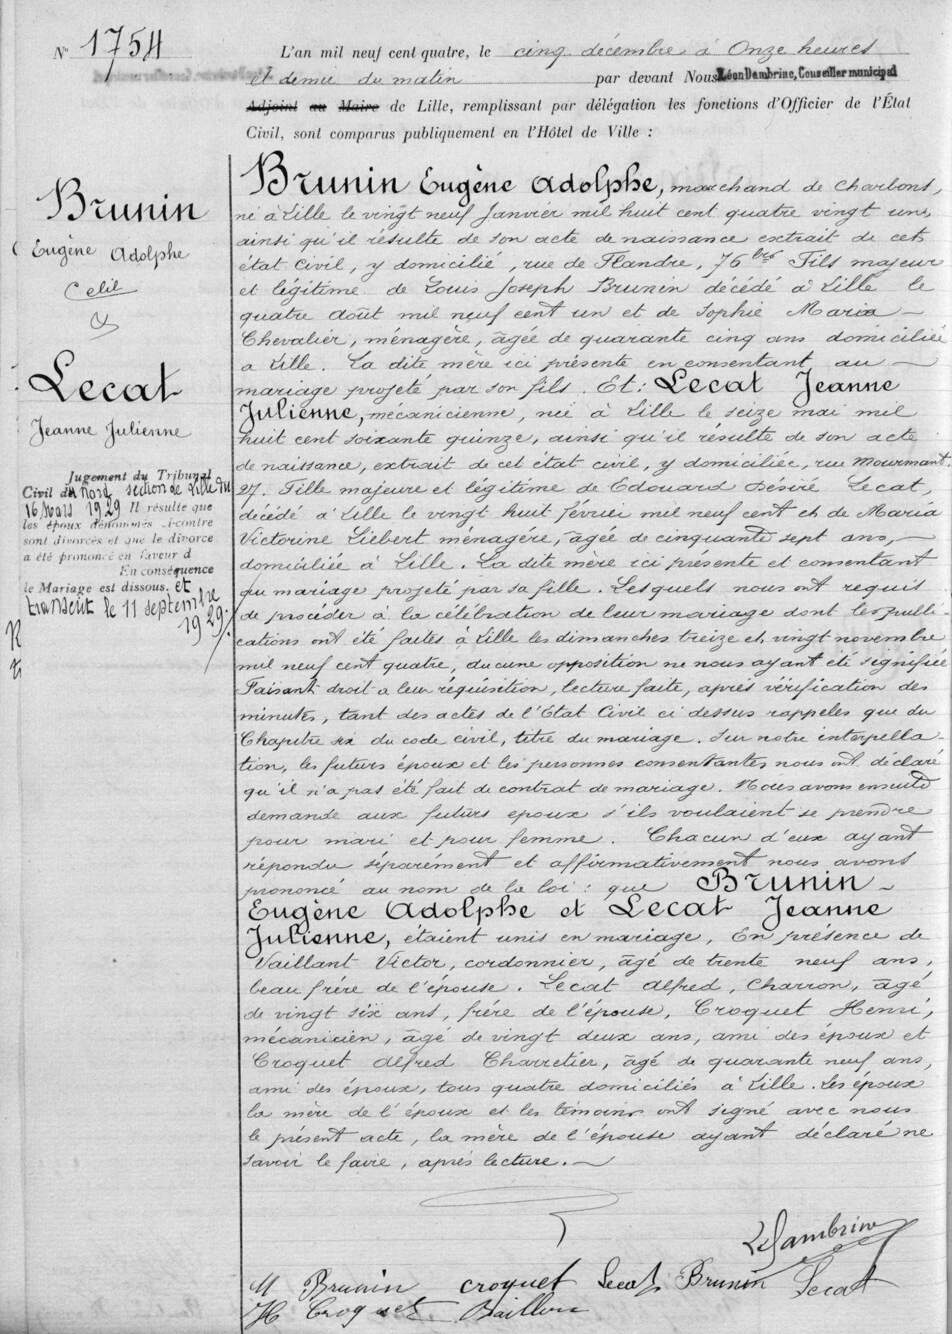 N° 1754
L'an mil neuf cent quatre, le cinq décembre à Onze heures
et demie du matin par devant Nous Léon Dambrine, Conseiller municipal
Adjoint au Maire de Lille, remplissant par délégation les fonctions d'Officier de l'État
Civil, sont comparus publiquement en l'Hôtel de Ville :
Brunin
Eugène Adolphe
Celib
&
Lecat
Jeanne Julienne
Jugement du Tribunal
Civil du Nord section de Lille du
16 Mars 1929 Il résulte que
les époux dénommés ci-contre
sont divorcés et que le divorce
a été prononcé en faveur d
En conséquence
le Mariage est dissous. et
transcrit le 11 septembre
1929
Brunin Eugène Adolphe, marchand de charbons,
né à Lille le vingt neuf Janvier mil huit cent quatre vingt un,
ainsi qu'il résulte de son acte de naissance extrait de cet
état civil, y domicilié, rue de Flandre, 76 bis Fils majeur
et légitime de Louis Joseph Brunin décédé à Lille le
quatre août mil neuf cent un et de Sophie Maria
Chevalier, ménagère, âgée de quarante cinq ans domiciliée
à Lille. La dite mère ici présente en consentant au
mariage projeté par son fils. Et : Lecat Jeanne
Julienne, mécanicienne, née à Lille le seize mai mil
huit cent soixante quinze, ainsi qu'il résulte de son acte
de naissance, extrait de cet état civil, y domiciliée, rue Mourmant
27. Fille majeure et légitime de Edouard Désiré Lecat,
décédé à Lille le vingt huit février mil neuf cent et de Maria
Victorine Liebert ménagère, âgée de cinquante sept ans,
domiciliée à Lille. La dite mère ici présente et consentant
au mariage projeté par sa fille. Lesquels nous ont requis
de procéder à la célébration de leur mariage dont les publi
cations ont été faites à Lille les dimanches treize et vingt novembre
mil neuf cent quatre, aucune opposition ne nous ayant été signifiée
Faisant droit à leur réquisition, lecture faite, après vérification des
minutes, tant des actes de l'Etat Civil ci dessus rappelés que du
Chapitre six du code civil, titre du mariage. Sur notre interpella-
tion, les futurs époux et les personnes consentantes, nous ont déclaré
qu'il n'a pas été fait de contrat de mariage. Nous avons ensuite
demandé aux futurs époux s'ils voulaient se prendre
pour mari et pour femme. Chacun d'eux ayant
répondu séparément et affirmativement nous avons
prononcé au nom de la loi : que Brunin
Eugène Adolphe et Lecat Jeanne
Julienne, étaient unis en mariage, En présence de
Vaillant Victor, cordonnier, âgé de trente neuf ans,
beau frère de l'épouse. Lecat Alfred, Charron, âgé
de vingt six ans, frère de l'épouse, Croquet Henri,
mécanicien, âgé de vingt deux ans, ami des époux et
Croquet Alfred Charretier, âgé de quarante neuf ans,
ami des époux, tous quatre domiciliés à Lille. Les époux
la mère de l'époux et les témoins ont signé avec nous
le présent acte, la mère de l'épouse ayant déclaré ne
savoir le faire, après lecture.
LDambrine
M Brunin croquet Lecat Brunin Lecat
H Croquet